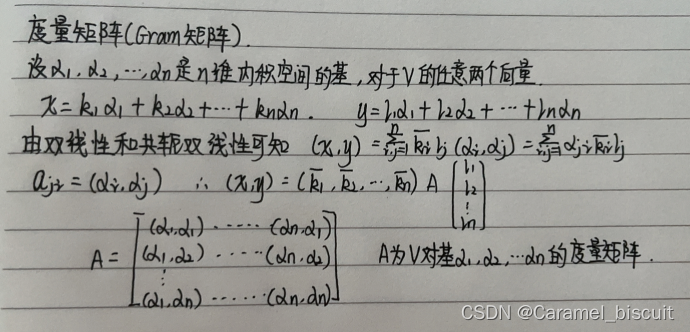 度量矩阵(Gram矩阵).
设α1,α2,…,αn是n维内积空间的基,对于V的任意两个向量.
x=k1α1+k2α2+…+knαn. y=l1α1+l2α2+…+lnαn
由双线性和共轭双线性可知 (x,y)=∑ⁿᵢ,ⱼ₌₁ k̄i lj (αi,αj)=∑ⁿᵢ,ⱼ₌₁ αji k̄i lj
aji=(αi,αj) ∴ (x,y)=(k̄1,k̄2,…,k̄n) A [l1 l2 ⋮ ln]
A= [(αi,α1) ····· (αn,α1)
(α1,α2) ····· (αn,α2)
⋮
(α1,αn) ······ (αn,αn)]
A为V对基α1,α2,…αn的度量矩阵.
CSDN @Caramel_biscuit